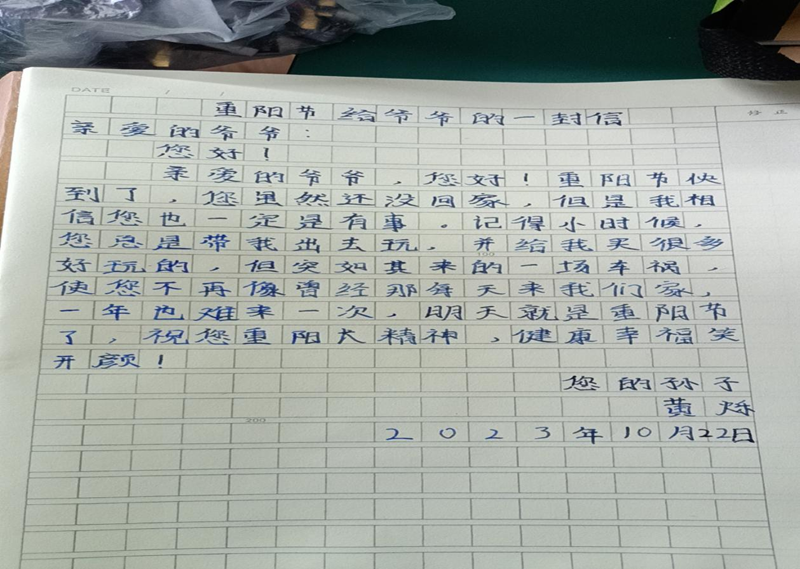 DATE / /
重阳节给爷爷的一封信
亲爱的爷爷：
您好！
亲爱的爷爷，您好！重阳节快
到了，您虽然还没回家，但是我相
信您也一定是有事。记得小时候，
您总是带我出去玩，并给我买很多
100
好玩的，但突如其来的一场车祸，
使您不再像曾经那每天来我们家，
一年也难来一次，明天就是重阳节
了，祝您重阳长精神，健康幸福笑
开颜！
您的孙子
黄烁
200
2023年10月22日